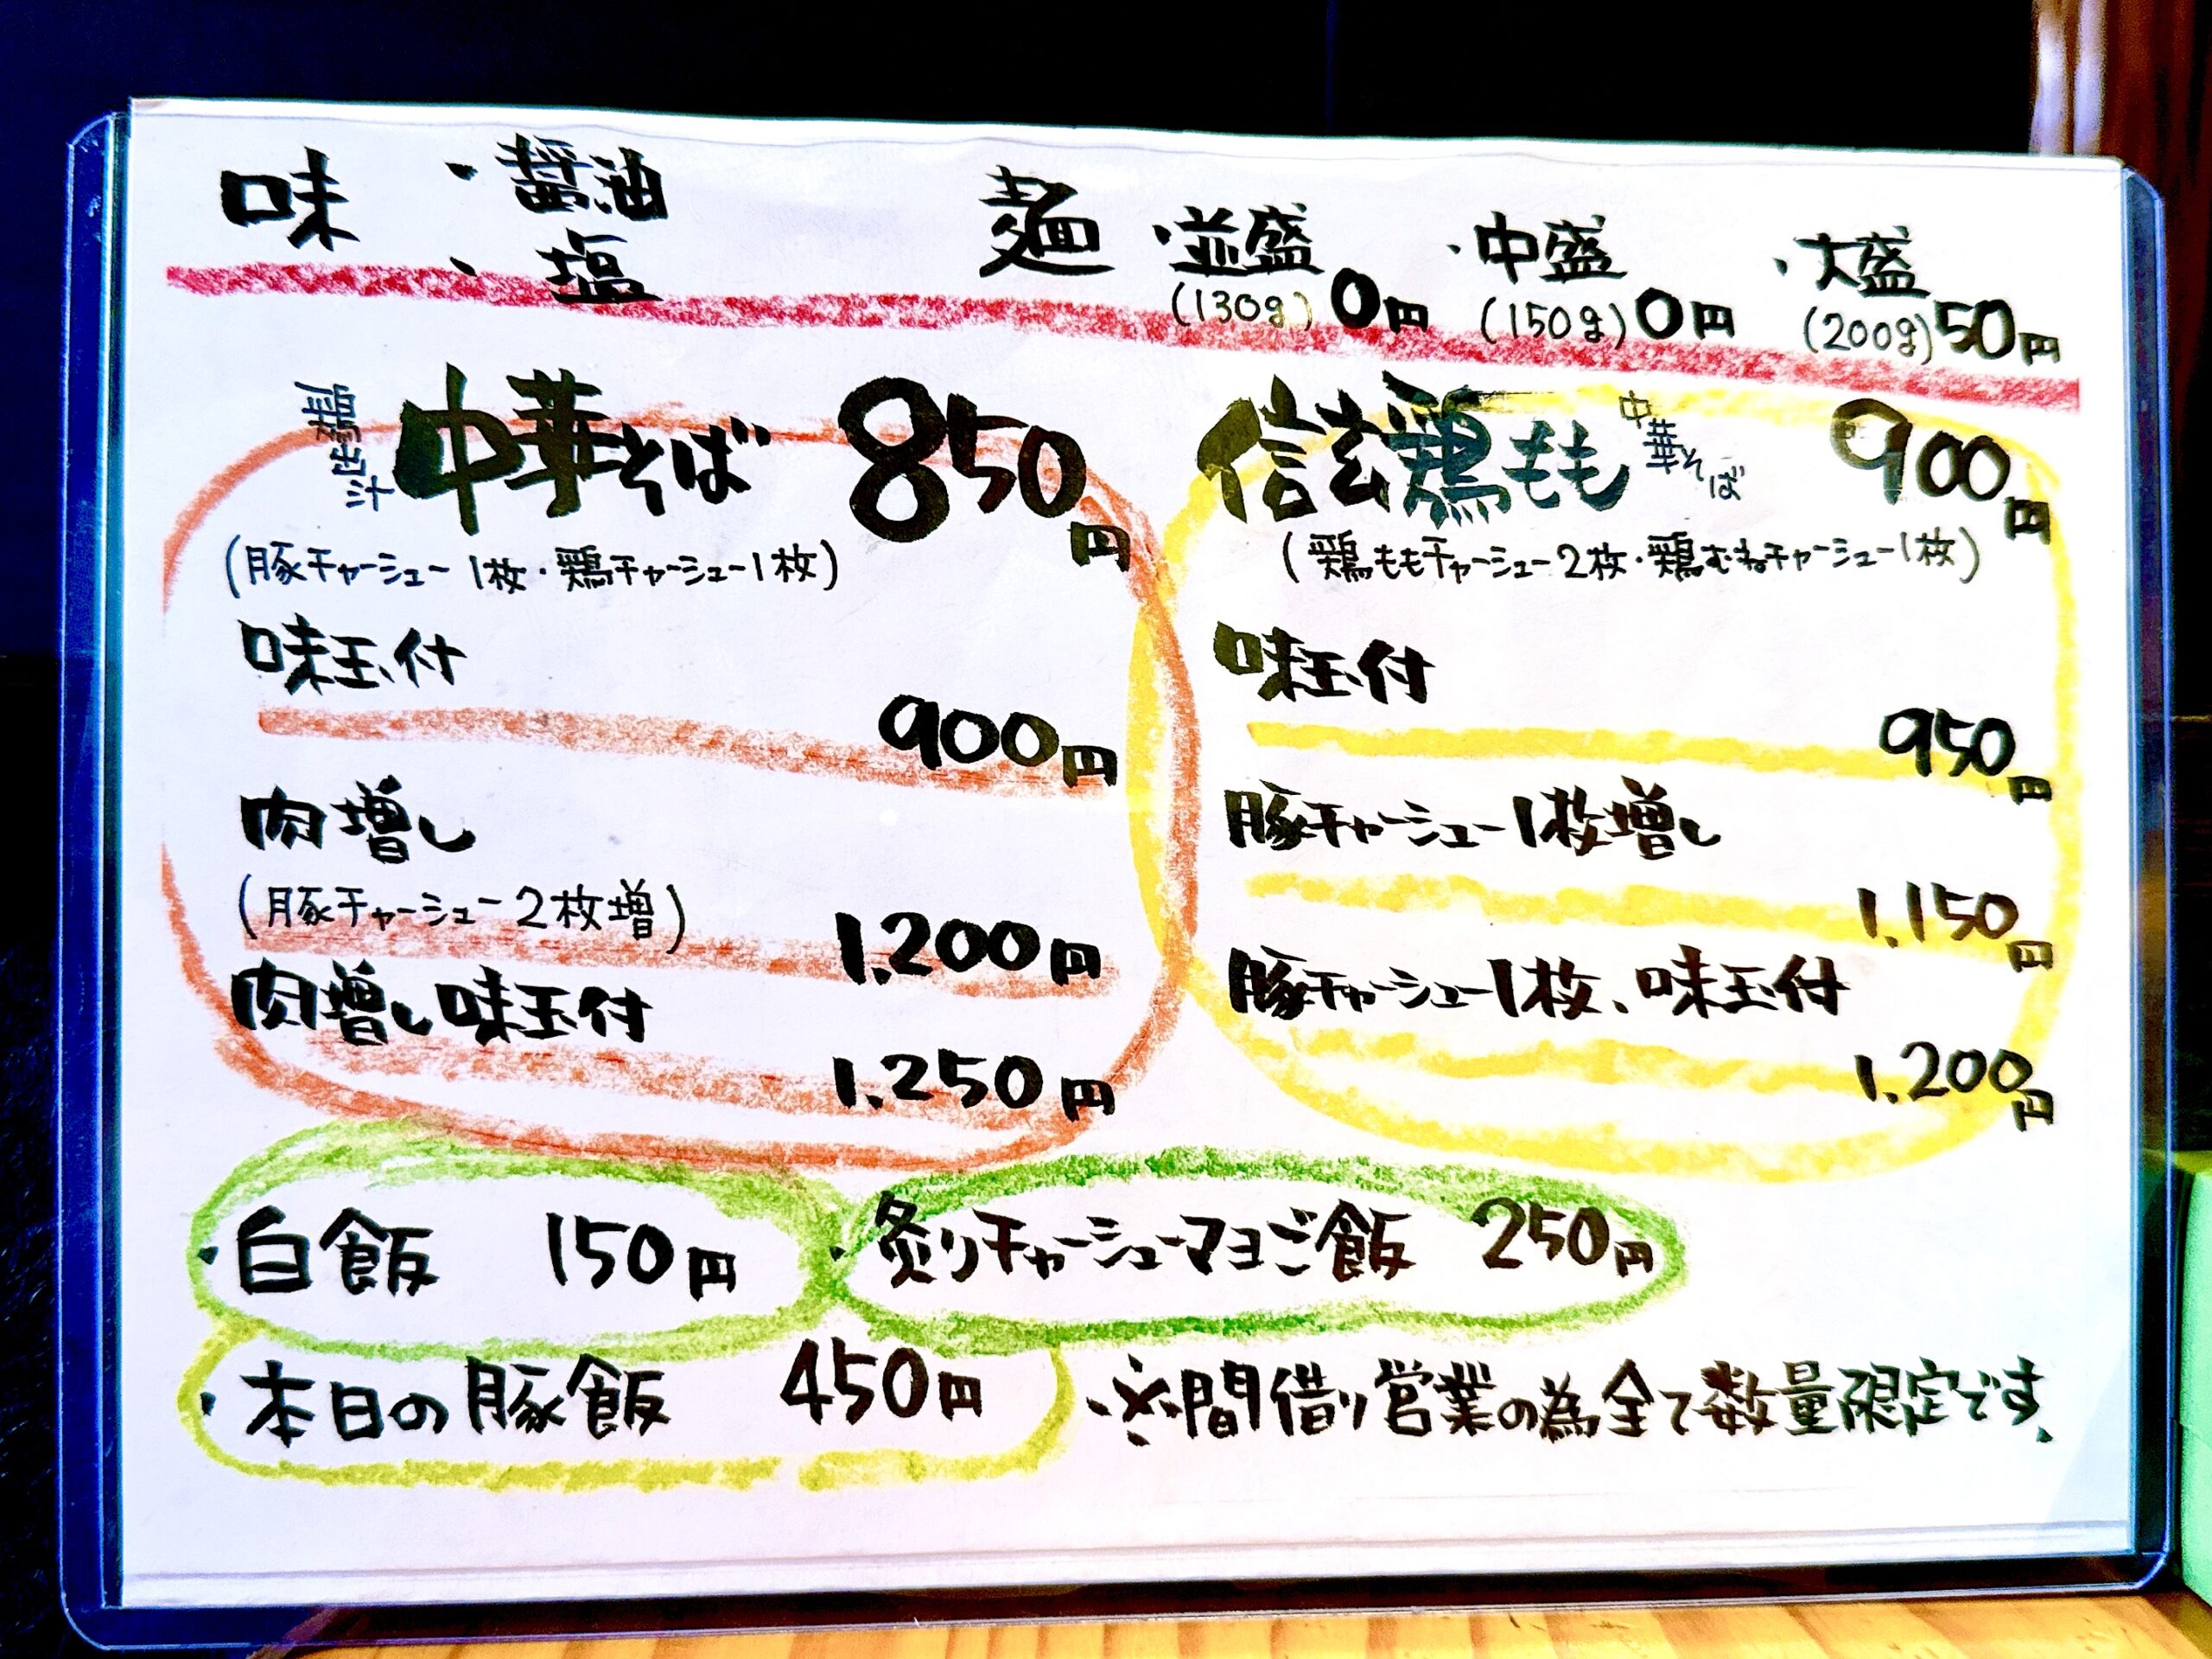 味 ・醤油
・塩
麺 ・並盛 ・中盛 ・大盛
(130g) 0円 (150g) 0円 (200g) 50円
鶏出汁 中華そば 850円
(豚チャーシュー1枚・鶏チャーシュー1枚)
味玉付
900円
肉増し
(豚チャーシュー2枚増) 1.200円
肉増し味玉付
1.250円
信玄鶏もも 中華そば 900円
(鶏ももチャーシュー2枚・鶏むねチャーシュー1枚)
味玉付
950円
豚チャーシュー1枚増し
1.150円
豚チャーシュー1枚、味玉付
1.200円
・白飯 150円 ・炙りチャーシューマヨご飯 250円
・本日の豚飯 450円 ・※間借り営業の為全て数量限定です、